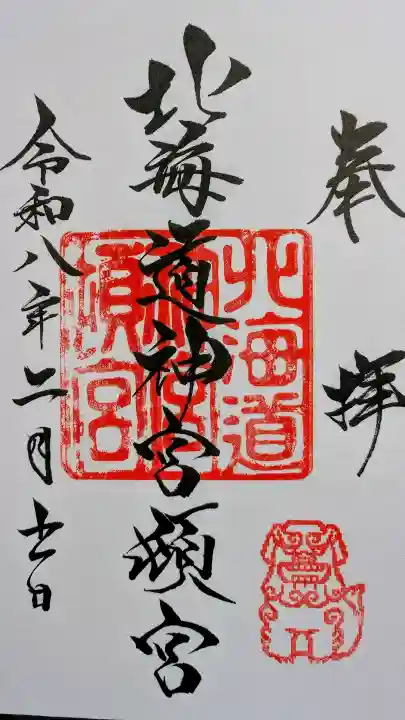 奉拝
北海道神宮頓宮
令和八年二月十一日
北海道
神宮
頓宮